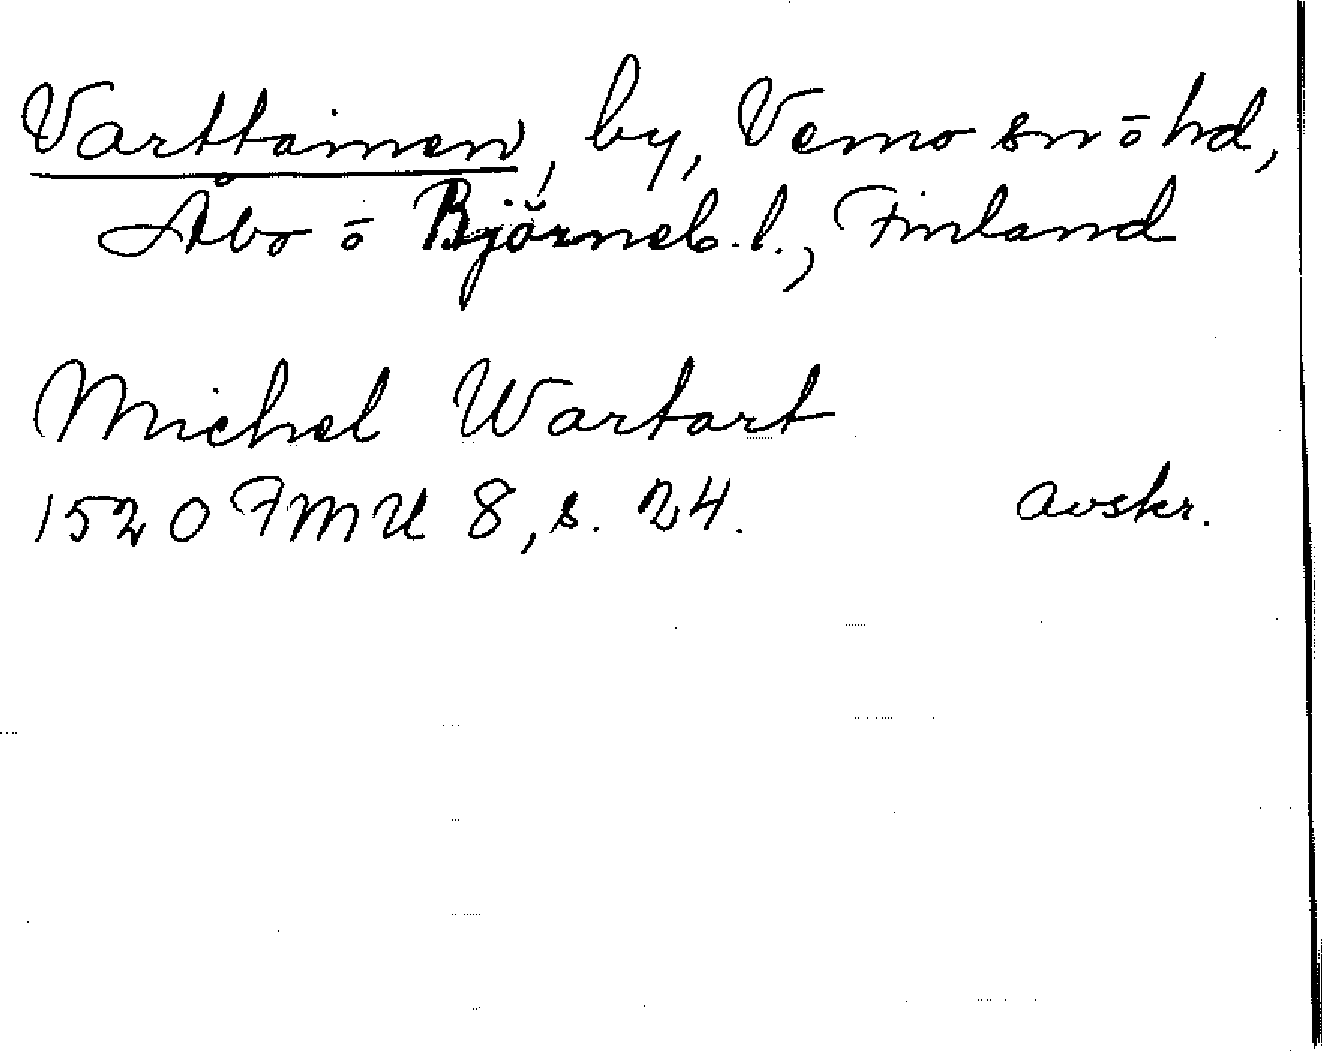 Varttainen, by, Vemo sn ō hd,
Åbo ō Björneb. l., Finland
Michel Wartart
1520 FMU 8, s. 24. avskr.